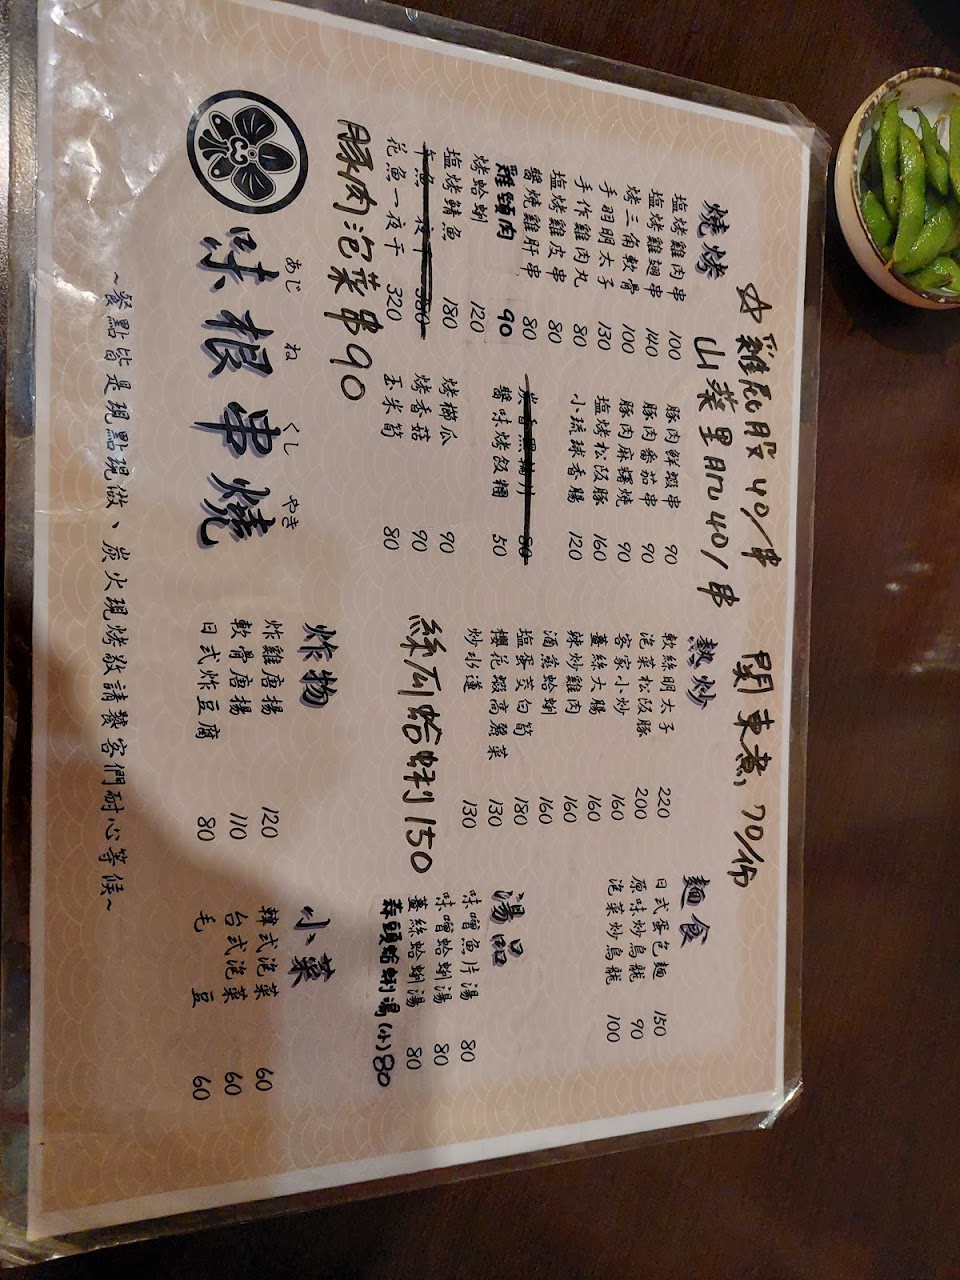 ☆雞屁股 40/串
山葵里肌 40/串
関東煮 70/份
燒烤
塩烤雞肉串 100
塩烤雞翅串 140
烤三角軟骨 100
手羽明太子 130
手作雞肉丸 80
塩烤雞皮串 80
醬燒雞肝串 80
雞頸肉 90
烤蛤蜊 120
塩烤鯖魚 180
午魚一夜干 380
花魚一夜干 320
豚肉泡菜串90
豚肉鮮蝦串 90
豚肉番茄串 90
豚肉麻糬燒 90
塩烤松阪豚 160
小琉球香腸 120
炭香黑輪片 80
醬味烤飯糰 50
烤櫛瓜 90
烤香菇 90
玉米筍 80
熱炒
軟絲明太子 220
泡菜松阪豚 200
客家小炒 160
薑絲大腸 160
辣炒雞肉 160
酒蒸蛤蜊 160
塩蛋茭白筍 180
櫻花蝦高麗菜 130
炒水蓮 130
絲瓜蛤蜊150
麵食
日式蛋包麵 150
原味炒烏龍 90
泡菜炒烏龍 100
湯品
味噌魚片湯 80
味噌蛤蜊湯 80
薑絲蛤蜊湯 80
蒜頭蛤蜊湯(小)80
炸物
炸雞唐揚 120
軟骨唐揚 110
日式炸豆腐 80
小菜
韓式泡菜 60
台式泡菜 60
毛豆 60
あじ ね くし やき
味根串燒
~餐點皆是現點現做、炭火現烤敬請饕客們耐心等候~